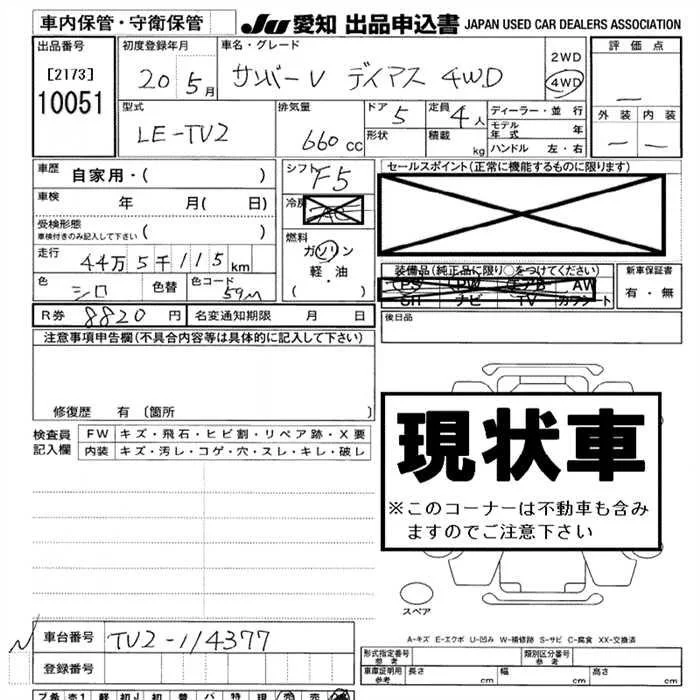 車内保管・守衛保管 JU 愛知 出品申込書 JAPAN USED CAR DEALERS ASSOCIATION
出品番号 [2173] 10051
初度登録年月 20 5月
車名・グレード サンバーV ディアス 4WD
2WD 4WD
評価点 —
外装 内装
— —
型式 LE-TV2
排気量 660 cc
ドア 5
形状
定員 4人
積載 kg
ディーラー・並行
モデル年式 年
ハンドル 左・右
車歴 自家用・( )
車検 年 月( 日)
受検形態 車検付きのみ記入して下さい ( )
走行 44万5千115km
色 シロ 色替 色コード 59M
シフト F5
冷房 AC
燃料 ガソリン
軽・油
( ・ )
セールスポイント(正常に機能するものに限ります)
装備品(純正品に限り○をつけてください)
PS PW エアB AW
SR ナビ TV カワシート
新車保証書 有・無
R券 8820円 名変通知期限 月 日
後日品
注意事項申告欄(不具合内容等は具体的に記入して下さい)
修復歴 有 〔箇所 〕
検査員記入欄
FW キズ・飛石・ヒビ割・リペア跡・X要
内装 キズ・汚レ・コゲ・穴・スレ・キレ・破レ
現状車
※このコーナーは不動車も含み
ますのでご注意下さい
スペア
A-キズ E-エクボ U-凹み W-補修跡 S-サビ C-腐食 XX-交換済
車台番号 TV2-114377
登録番号
形式指定番号 参考 類別区分番号 参考
車庫証明用 参考 長さ cm 幅 cm 高さ cm